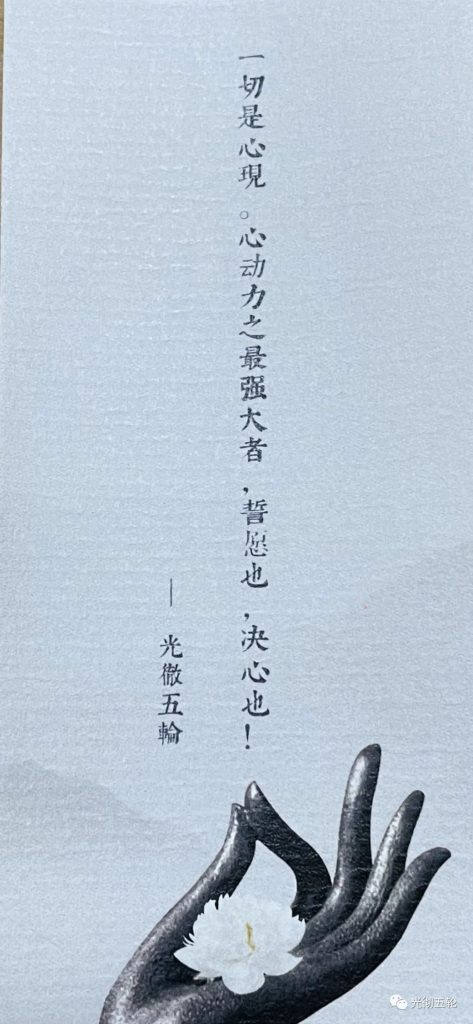 一切是心現。心动力之最强大者，誓愿也，决心也！
— 光徹五輪
光彻五轮